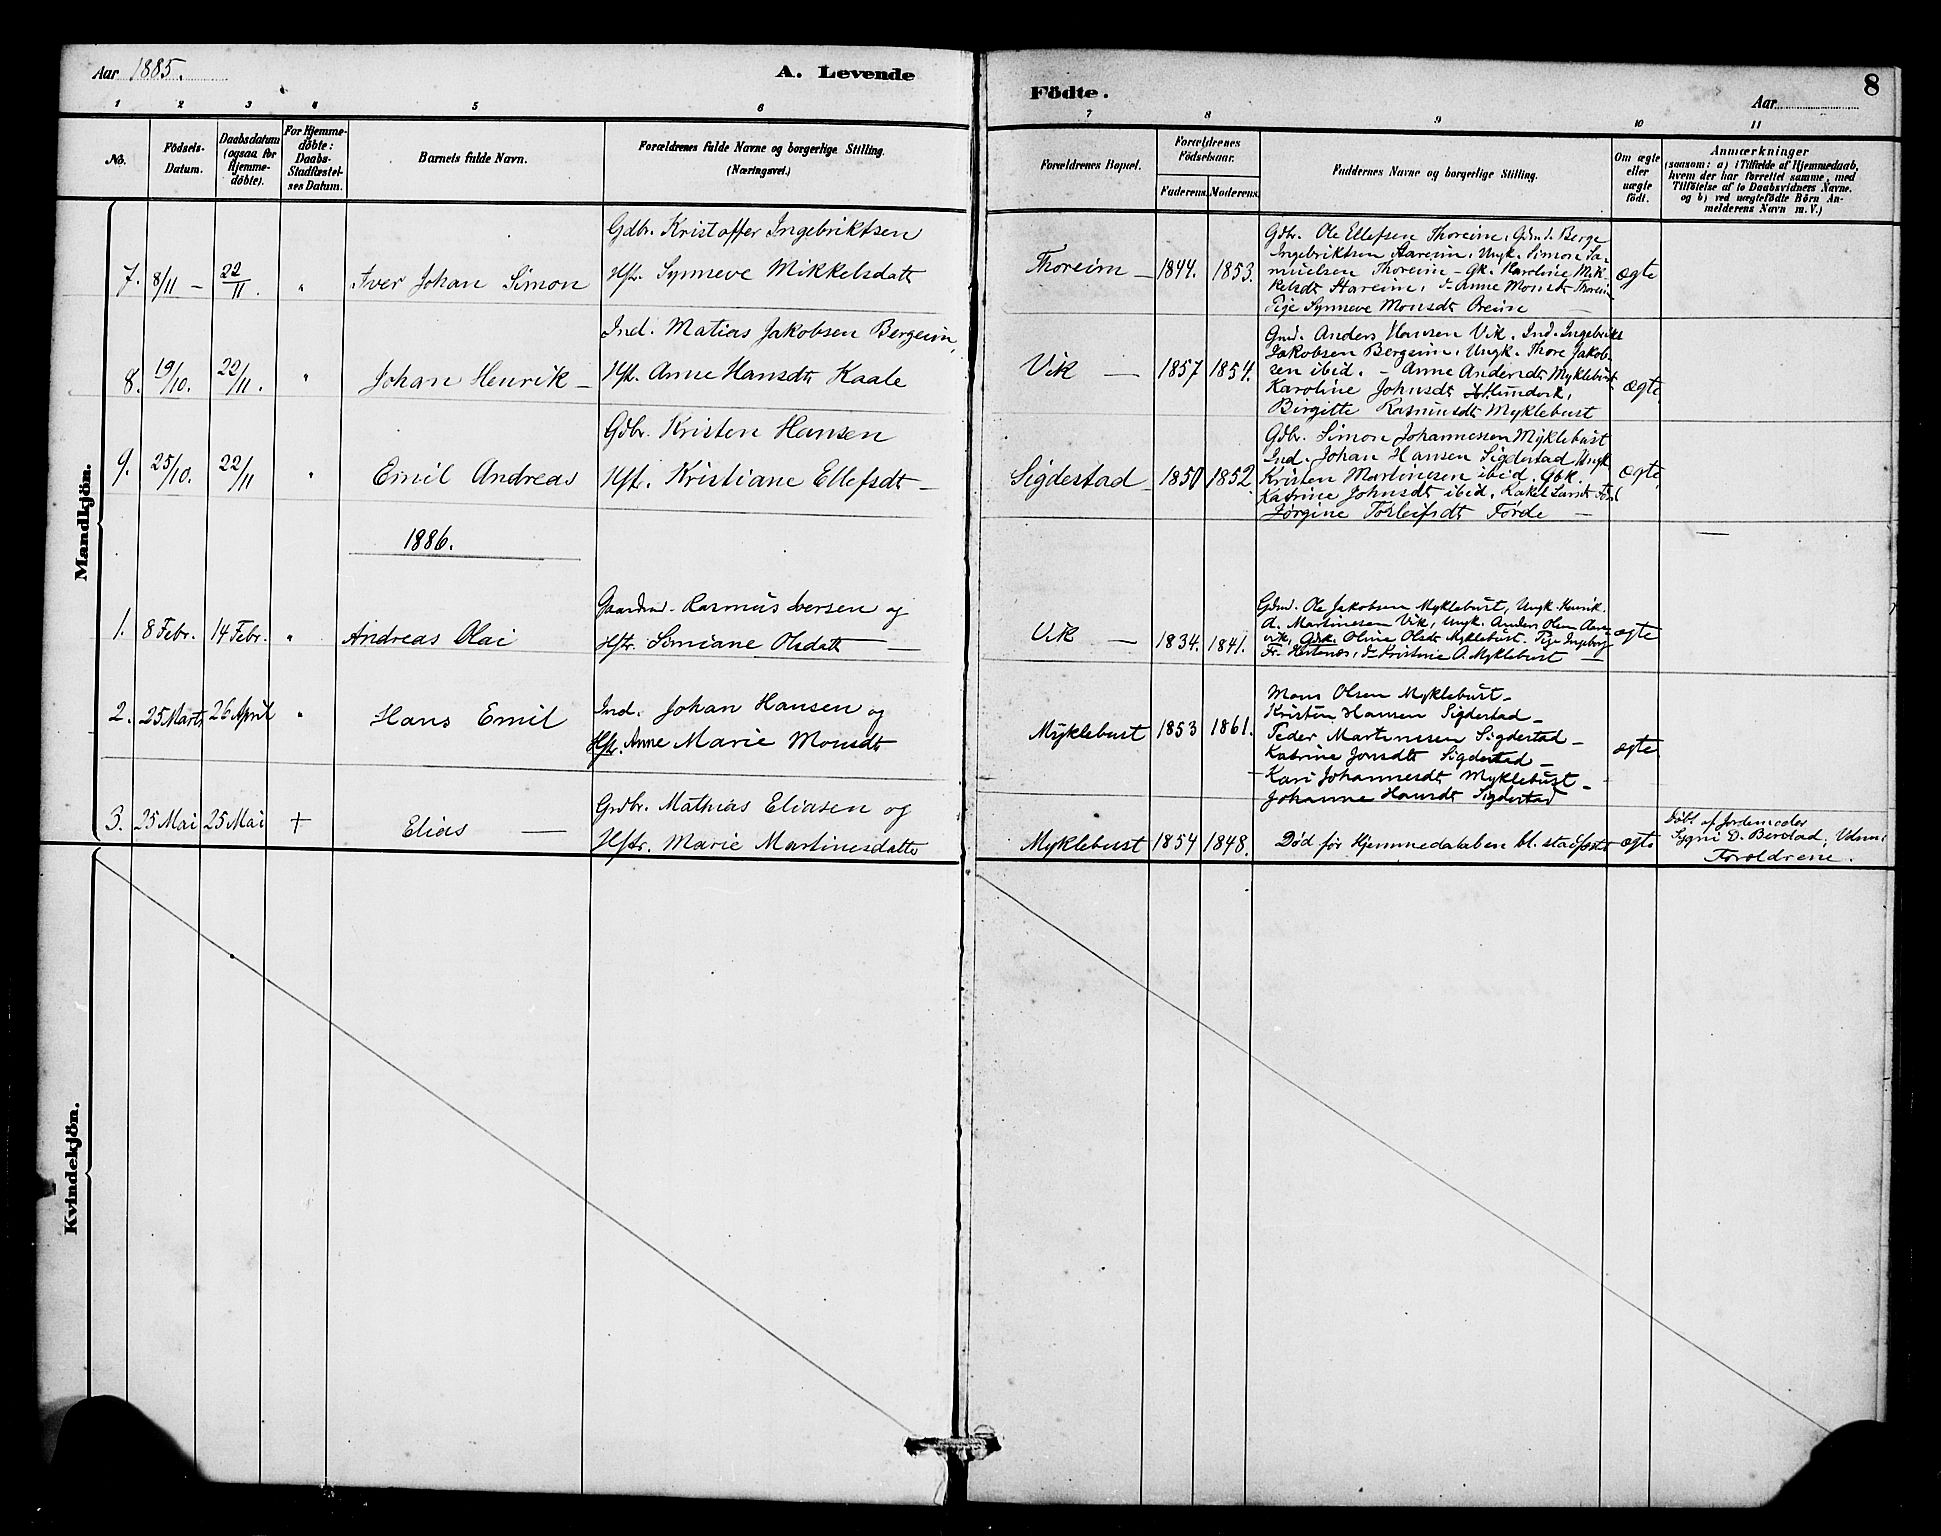 Aar 1885.
A. Levende
Födte.
Aar
8
1 2 3 4 5 6 7 8 9 10 11
No.
Födsels-
Datum.
Daabsdatum
(ogsaa for
Hjemme-
döbte).
For Hjemme-
döbte:
Daabs-
Stadfæstel-
ses Datum.
Barnets fulde Navn.
Forældrenes fulde Navne og borgerlige Stilling.
(Næringsvei.)
Forældrenes Bopæl.
Forældrenes
Födselsaar.
Faderens. Moderens.
Faddernes Navne og borgerlige Stilling.
Om ægte
eller
uægte
födt.
Anmærkninger
(saasom: a) i Tilfælde af Hjemmedaab,
hvem der har forrettet samme, med
Tilföielse af to Daabsvidners Navne,
og b) ved uægtefödte Börn An-
melderens Navn m. V.)
Mandkjön.
7. 8/11 - 22/11. " Iver Johan Simon
Gdbr. Kristoffer Ingebriktsen
Hst. Synneve Mikkelsdatt
Thoreim - 1844. 1853.
Gdbr. Ole Ellefsen Thoreim. Gdmd. Berge
Ingebriktsen Stareim. Ungk. Simon Sa-
muelsen Thoreim - Gk. Karoline Mik-
kelsdt Stareim. do Anne Monsdt Thoreim
Pige Synneve Monsdt Oreim
ægte
8. 19/10. 22/11. " Johan Henrik -
Ind. Matias Jakobsen Bergeim,
Hst. Anne Hansdt Kaale
Vik - 1857 1854.
Gmd. Anders Hansen Vik. Ind. Ingebrikt
Jakobsen Bergeim. Ungk. Thore Jakob-
sen ibid. - Anne Andersdt Myklebust
Karoline Johnsdt
Birgitte Rasmusdt Myklebust
ægte
9. 25/10. 22/11 " Emil Andreas
Gdbr. Kristen Hansen
Hst. Kristiane Ellefsdt -
Sigdestad 1850 1852.
Gdbr. Simon Johannessen Myklebust
Ind. Johan Hansen Sigdestad Ungk
Kristen Martinesen ibid. Gbk.
Katrine Johnsdt ibid. Rakel Larsdt
Jörgine Torleifsdt Förde -
ægte
1886.
1. 8 Febr. 14 Febr. " Andreas Olai
Gaardmd. Rasmus Iversen og
Hstr. Simiane Olsdatt -
Vik - 1834. 1841.
Gdmd. Ole Jakobsen Myklebust, Ungk. Henrik
A. Martinesen Vik, Ungk. Anders Olsen Aare-
vik, Gdk. Oline Olsdt Myklebust. Pige Ingeborg
Fr. Hestenes, do Kristine A. Myklebust -
ægte
2. 25 Marts 26 April " Hans Emil
Ind. Johan Hansen og
Hst. Anne Marie Monsdt
Myklebust 1853 1861.
Mons Olsen Myklebust -
Kristen Hansen Sigdestad -
Peder Martinesen Sigdestad -
Katrine Jonsdt Sigdestad -
Kari Johannesdt Myklebust -
Johanne Hansdt Sigdestad
ægte
3. 25 Mai 25 Mai + Elias -
Grdbr. Mathias Eliasen og
Hstr. Marie Martinesdatte
Myklebust 1854 1848.
Död för Hjemmedaaben bl. stadfæstet
ægte
Döbt af Jordemoder
Sygni D. Berstad; Vidnn:
Foroldrene.
Kvindekjön.